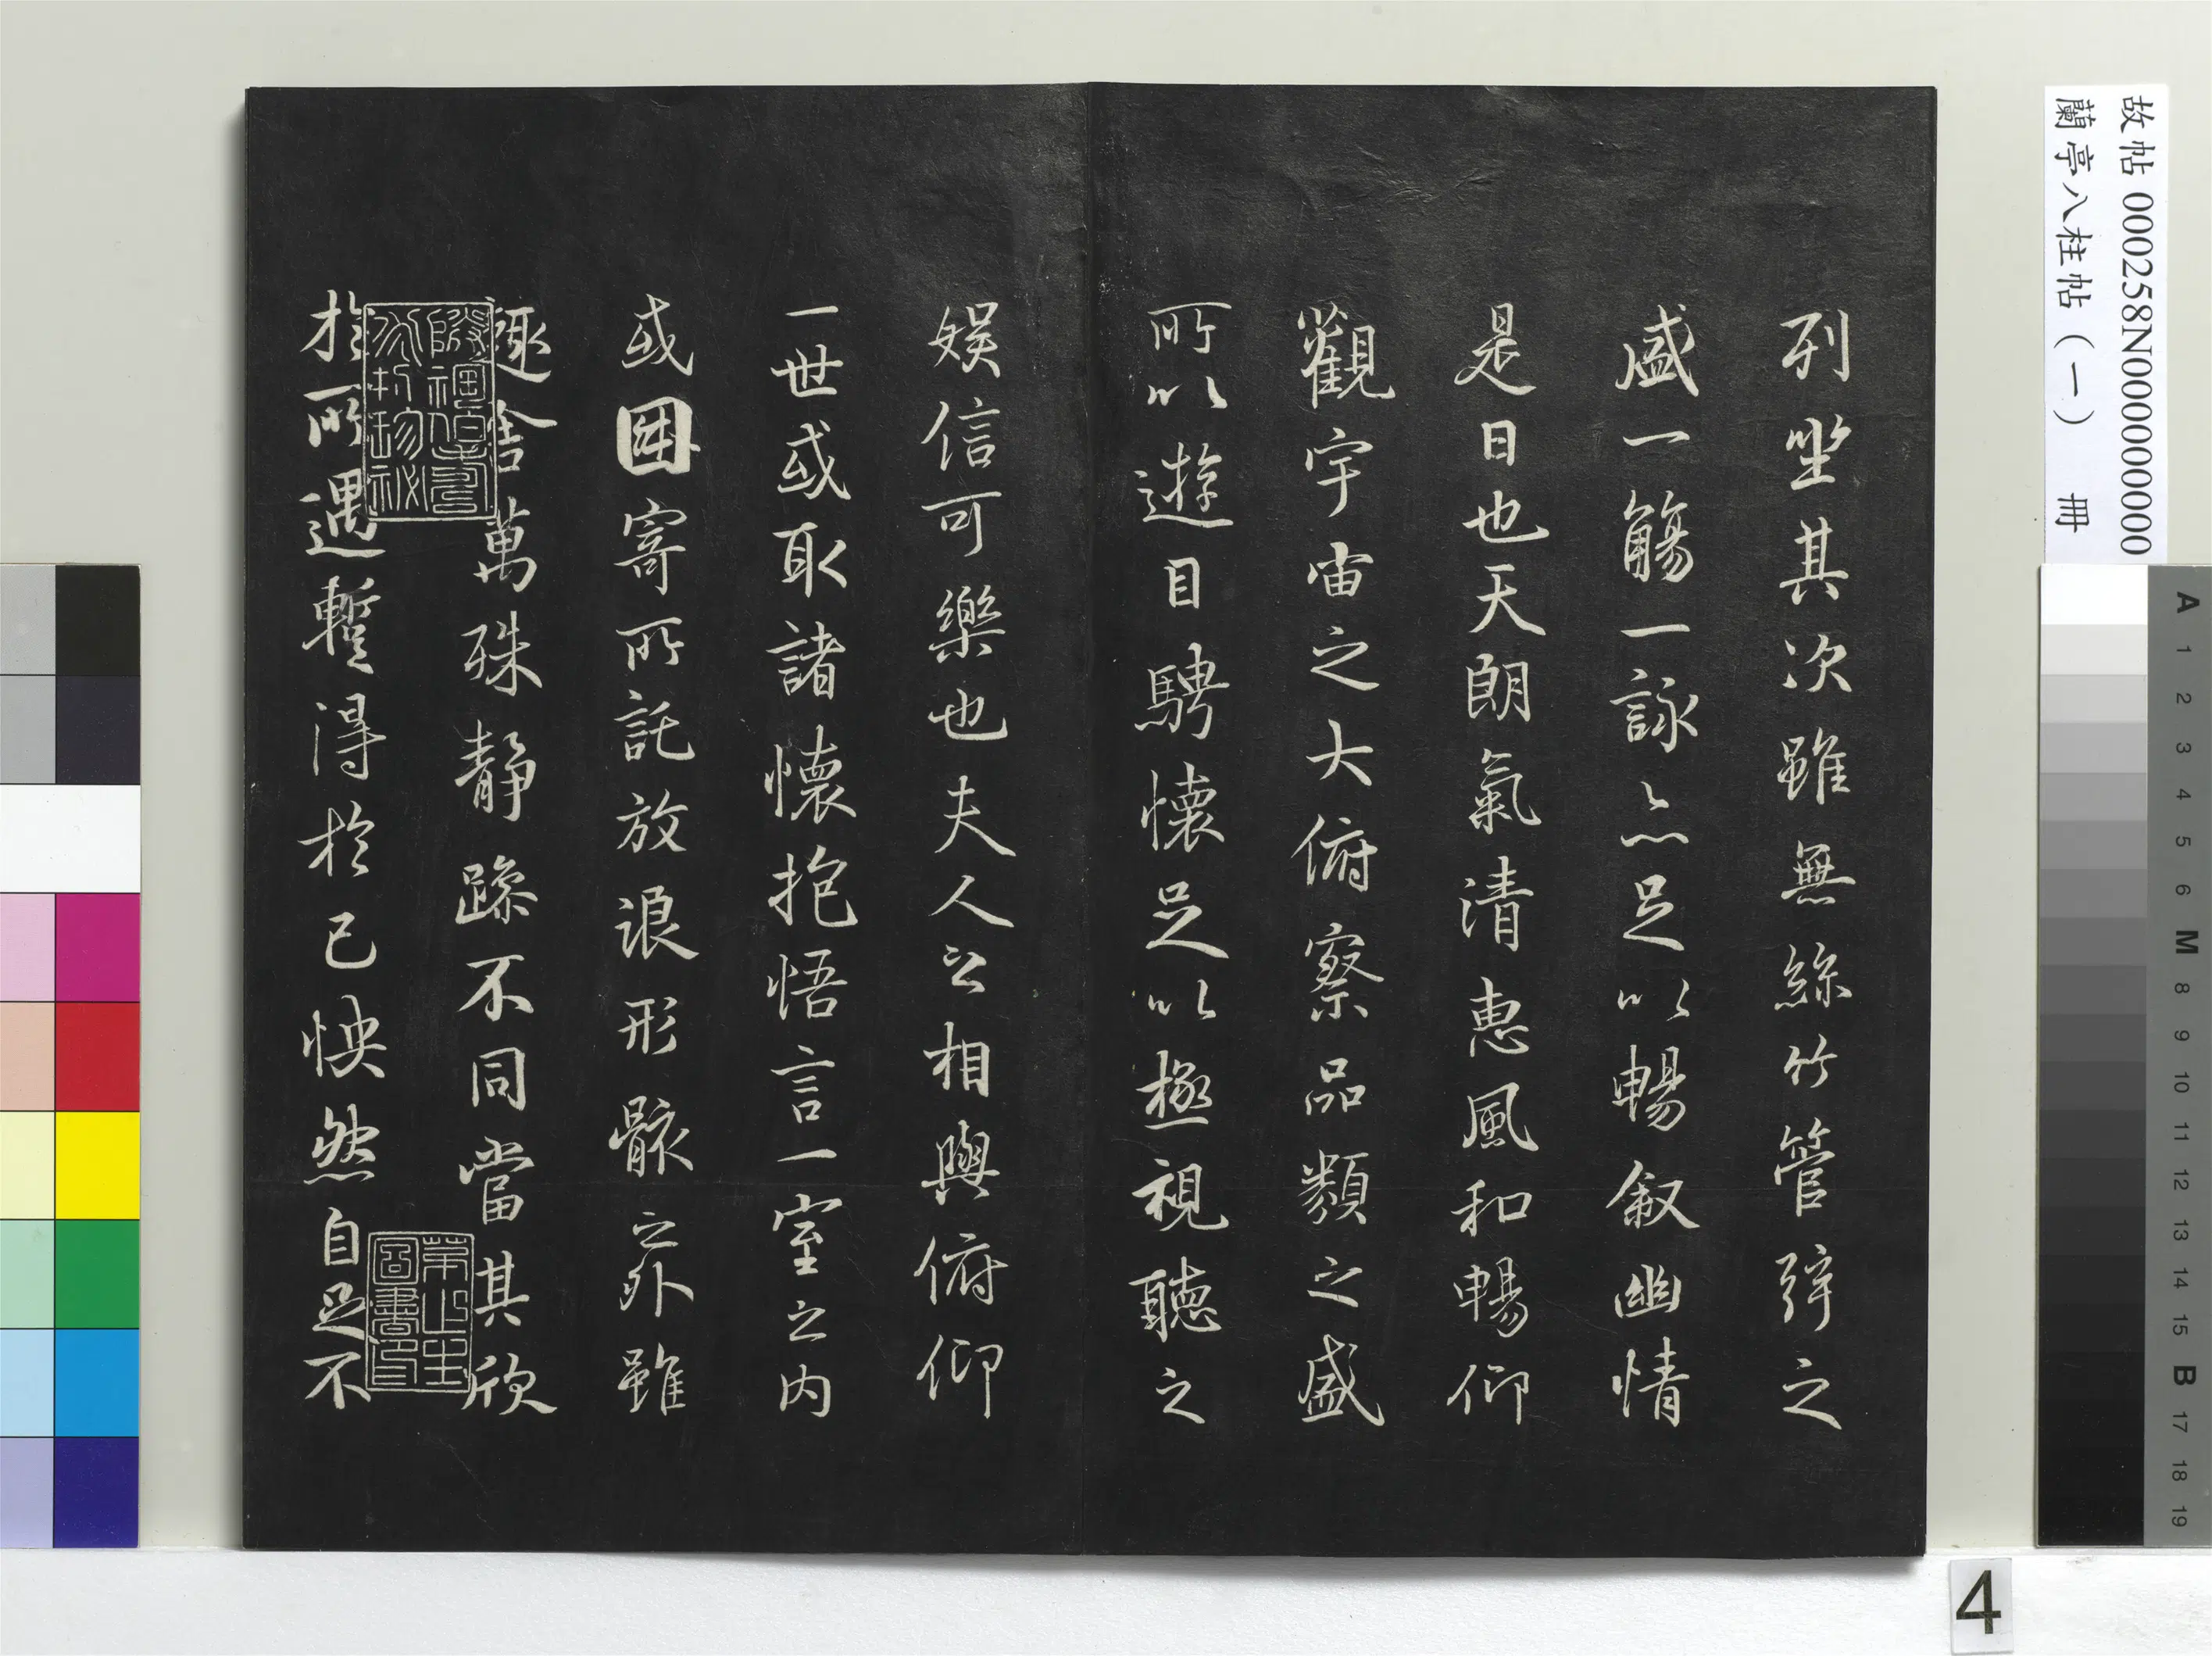 列坐其次雖無絲竹管弦之
盛一觴一詠亦足以暢叙幽情
是日也天朗氣清惠風和暢仰
觀宇宙之大俯察品類之盛
所以遊目騁懷足以極視聽之
娛信可樂也夫人之相與俯仰
一世或取諸懷抱悟言一室之內
或因寄所託放浪形骸之外雖
趣舍萬殊靜躁不同當其欣
於所遇蹔得於己怏然自足不
故帖 000258N000000000
蘭亭八柱帖（一） 冊
4
A
1
2
3
4
5
6
M
8
9
10
11
12
13
14
15
B
17
18
19